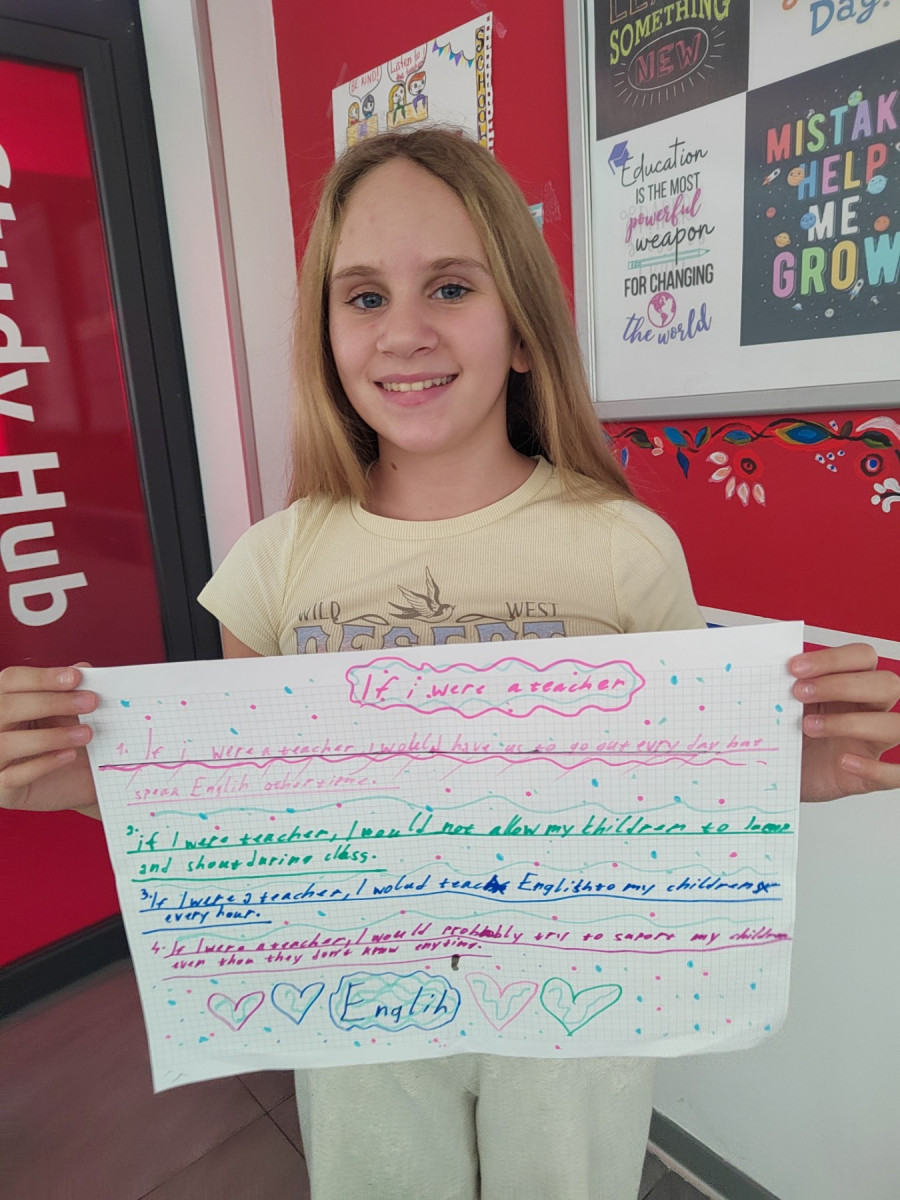 BE KIND!
Listen to
SCHOOL
SOMETHING
NEW
Day!
Education
IS THE MOST
powerful
weapon
FOR CHANGING
the world
MISTAK
HELP
ME
GROW
Study Hub
WILD WEST
DESERT
If i were a teacher
1. If i were a teacher, I would have us to go out evry day, but
speak Englih other time.
2. if I were teacher, I would not allow my children to
and shout during class.
3. If I were a teacher, I wolud teach English to my children
every hour.
4. If I were a teacher, I would probbably try to suport my children
even thou they don't know anytime.
Englih